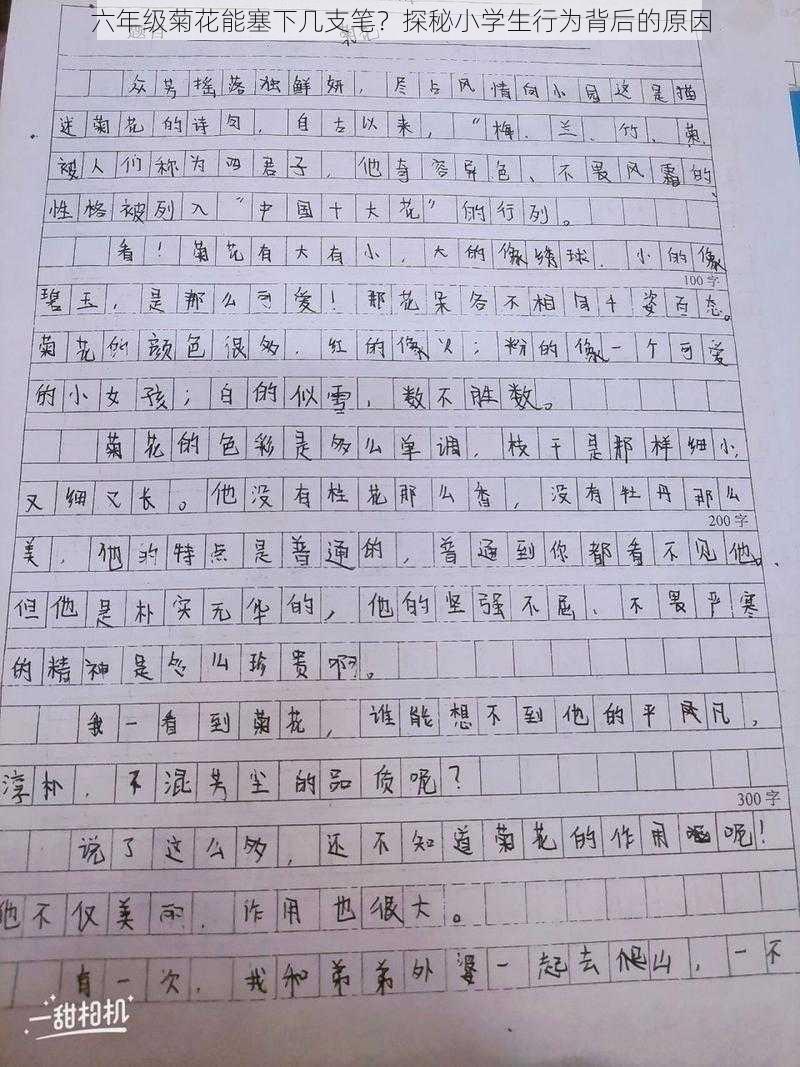 六年级菊花能塞下几支笔？探秘小学生行为背后的原因
题目
众芳摇落独鲜妍，尽占风情向小园这是描
迷菊花的诗句，自古以来，“梅、兰、竹、菊，
被人们称为四君子，他奇容异色、不畏风霜的
性格被列入“中国十大花”的行列。
看！菊花有大有小，大的像绣球，小的像
100字
碧玉，是那么可爱！那花朵各不相同千姿百态。
菊花的颜色很多，红的像火；粉的像一个可爱
的小女孩；白的似雪，数不胜数。
菊花的色彩是多么单调，枝干是那样细小，
又细又长。他没有桂花那么香，没有牡丹那么
200字
美，他的特点是普通的，普通到你都看不见他。
但他是朴实无华的，他的坚强不屈、不畏严寒
的精神是多么珍贵啊。
我一看到菊花，谁能想不到他的平凡，
淳朴，不混芳尘的品质呢？
300字
说了这么多，还不知道菊花的作用呢！
他不仅美丽，作用也很大。
有一次，我和弟弟外婆一起去爬山，一不
一甜相机